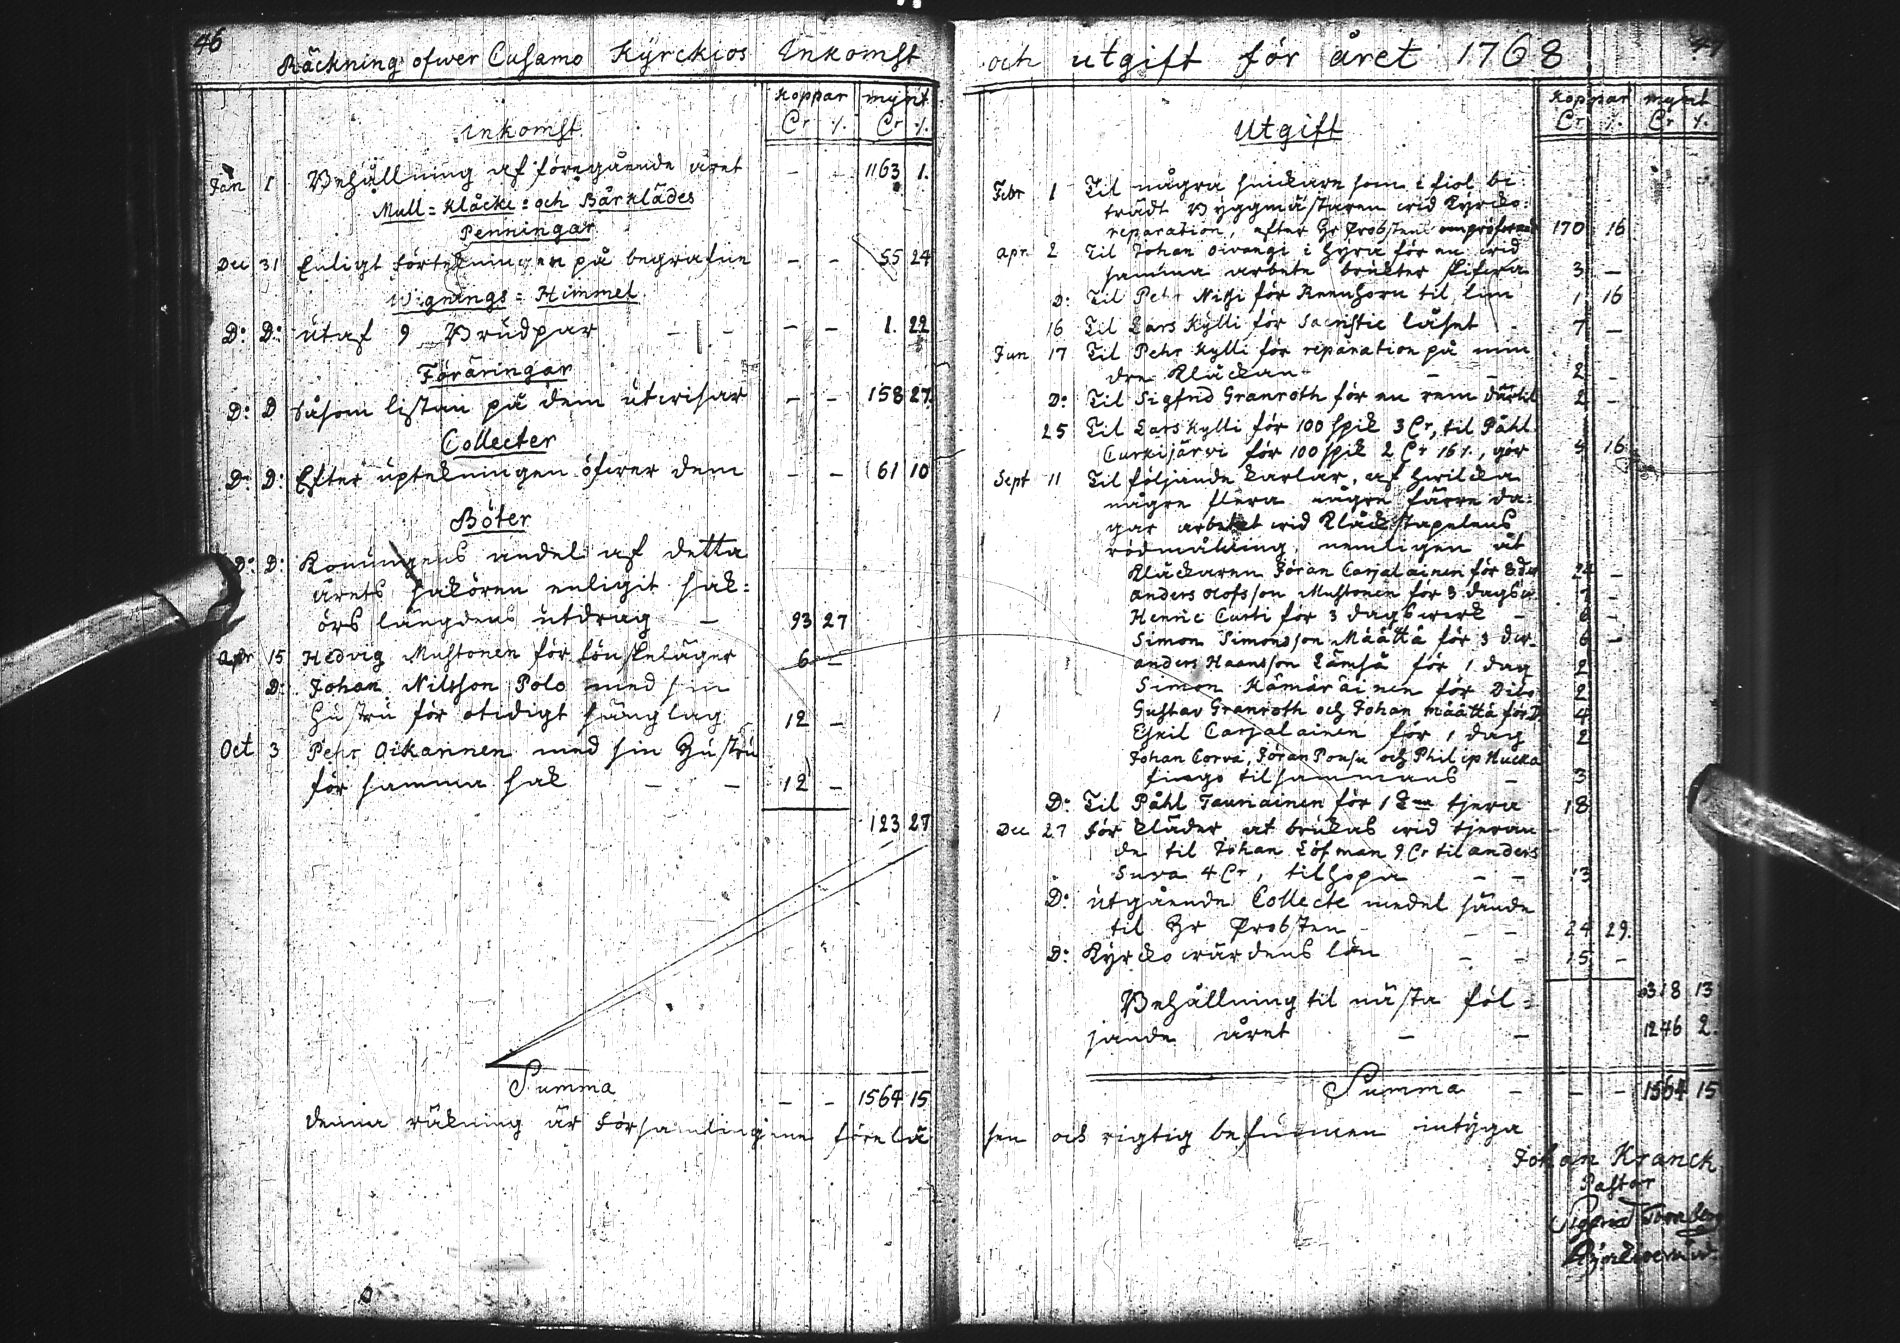 46
Räckning ofwer Cusamo Kyrckios Inkomst
Koppar mynt
Cr ⁒. Cr ⁒.
Inkomst
Jan 1 Behållning af föregående året - - 1163 1.
Mull= Klåcke= och Bårklädes
Penningar
Dec 31 Enligt förtekningen på begrafne - - 55 24
Wignings= Himmel
D: D: utaf 9 Brudpar - - - - 1. 22
Föräringar
D: D såsom listan på dem utwisar - - 158 27.
Collecter
D: D: Efter uptekningen öfwer dem - - 61 10
Böter
D: D: Konungens andel af detta
årets sakören enligit sak=
örs längdens utdrag - 93 27
Apr 15 Hedvig Mustonen för lönskeläger 6 -
D: Johan Nilsson Polo med sin
hustru för otidigt sänglag 12 -
Oct 3 Pehr Oikarinen med sin Hustru
för samma sak - - 12 -
123 27
Summa - - 1564 15
denna räkning är Församlingene förelä
47
och utgift för året 1768
Koppar mynt
Cr ⁒. Cr ⁒.
Utgift
Febr 1 Til några snickare som i fiol be
trädt Byggmästaren wid Kyrko=
reparation, efter Hr Probstens 170 16
Apr 2 Til Johan Oivangi i hyra för en wid
samma arbete brukter 3 -
D: Til Pehr Nissi för Renhorn til lim 1 16
16 Til Lars Kylli för Sacristie låset - 7 -
Jun 17 Til Pehr Kylli för reparation på min
dre Klåckan - - 2 -
D: Til Sigfrid Granroth för en rem därtil 2 -
25 Til Lars Kylli för 100 spik 3 Cr, til Påhl
Curkijärvi för 100 spik 2 Cr 16 ⁒., gör 5 16
Sept 11 Til följande karlar, af hwilcka
någre flera någre färre da=
gar arbetet wid Klåckstapelens
rödmålning, nemligen åt
Klåckaren Jöran Carjalainen för 24 -
anders Olofsson Mustonen för 3 dagsw. 7 -
Henric Curti för 3 dagswerk - 6 -
Simon Simonsson Määttä för 3 6 -
anders Haansson Lämsä för 1 dag 2
Simon Kämäräinen för Dito 2
Gustav Granroth och Johan Määttä för D: 4
Eskil Carjalainen för 1 dag 2
Johan Corva, Jöran Pousu och Philip Hucka
fingo tilsammans - 3
D: Til Påhl Tauriainen för 1 tjera 18
Dec 27 för kläder at brukas wid tjeran
de til Johan Löfman 9 Cr til anders
Sura 4 Cr, tilhopa - - 13
D: utgående Collecte medel sände
til Hr Probsten - - 24 29.
D: Kyrckowärdens lön - - 15 -
318 13
Behållning til nästa föl=
jande året - - 1246 2.
Summa - - - 1564 15
sen och rigtig befunnen intyga
Johan Kranck
Pastor